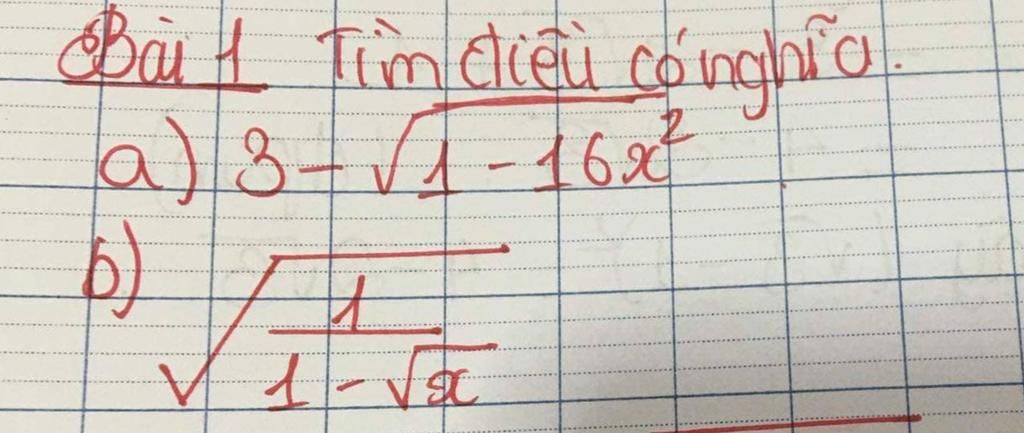 Bài 1 Tìm điều có nghĩa.
a) 3 - √1 - 16x²
b) √1/1 - √x